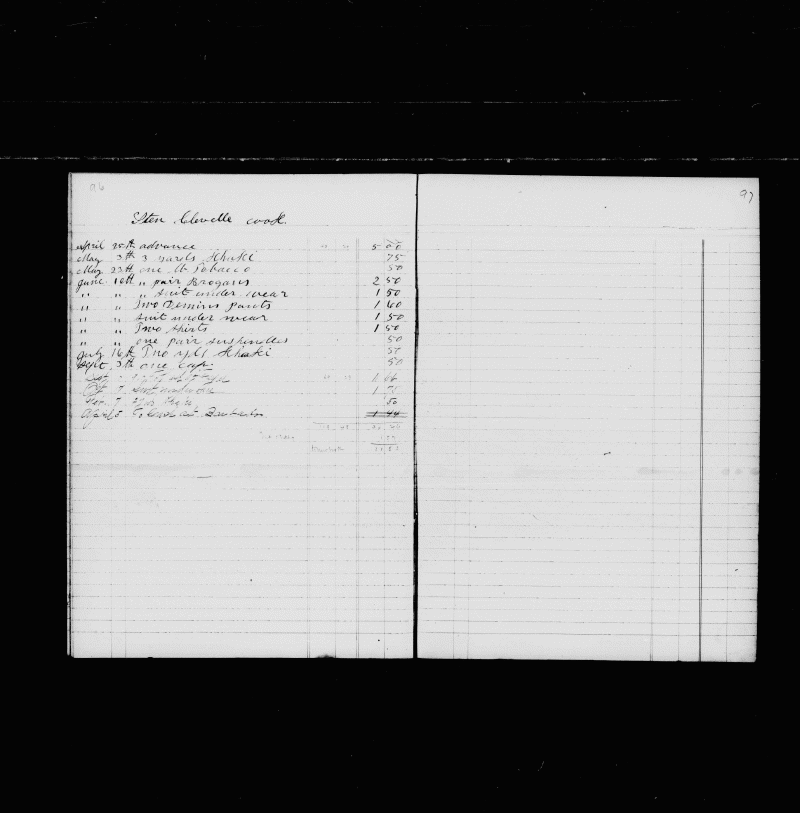 96
Sten Clevelle cook.
April 25th advance 5 00
May 3th 3 yards Khaki 75
May 23th one lb Tobacco 50
June 10th " pair Brogans 2 50
" " " suit under wear 1 50
" " Two Demins pants 1 60
" " suit under wear 1 50
" " Two shirts 1 50
" " one pair suspendles 50
July 16th Two yds Khaki 50
Sept. 3th one cap. 50
1 66
Oct 7. suit underwear 1 75
50
April 5 1 44
97